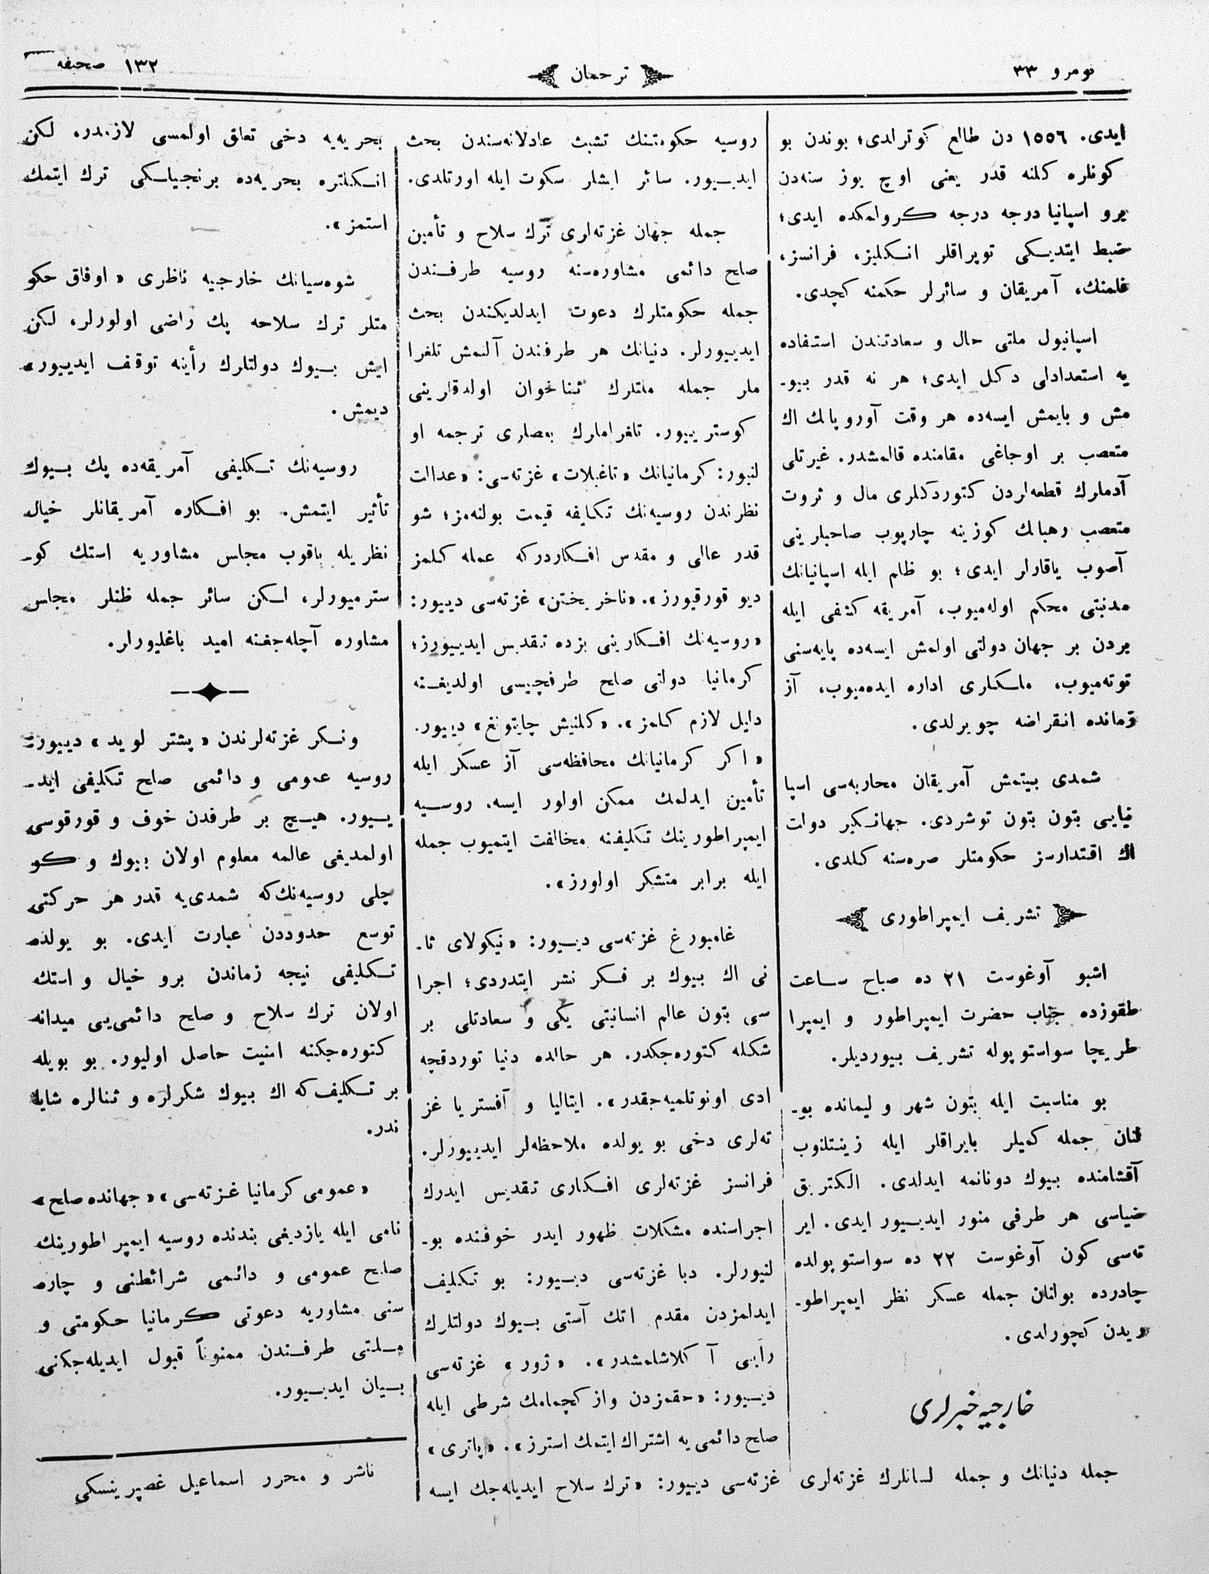 نومرو ۳۳
ترجمان
۱۳۲ صحیفه
ایدی. ۱۵۵٦ دن طالع کوترلدی؛ بوندن بو
کونلره کلنه قدر یعنی اوچ یوز سنه‌دن
برو اسپانیا درجه درجه کرولمکده ایدی؛
ضبط ایتدیکی توپراقلر انکلیز، فرانسز،
فلمنك، آمریقان و سائرلر حکمنه کچدی.
اسپانیول ملتی حال و سعادتندن استفاده
یه استعدادلی دکل ایدی؛ هر نه قدر بیو-
مش و بایمش ایسه‌ده هر وقت آوروپانك اك
متعصب بر اوجاغی مقامنده قالمشدر. غیرتلی
آدملرك قطعه‌لردن کتوردکلری مال و ثروت
متعصب رهبانك کوزینه چارپوب صاحبلرینی
آصوب یاقارلر ایدی؛ بو ظلم ایله اسپانیانك
مدنیتی محکم اوله‌میوب، آمریقه کشفی ایله
بردن بر جهان دولتی اولمش ایسه‌ده پایه‌سنی
توته‌میوب، ملکلری اداره ایده‌میوب، آز
زمانده انقراضه چویرلدی.
شمدی بیتمش آمریقان محاربه‌سی اسپا
نیایی بتون بتون توشردی. جهانکیر دولت
اك اقتدارسز حکومتلر صره‌سنه کلدی.
تشریف ایمپراطوری
اشبو آوغوست ۲۱ ده صباح ساعت
طقوزده جناب حضرت ایمپراطور و ایمپرا
طریچا سواستوپوله تشریف بیوردیلر.
بو مناسبت ایله بتون شهر و لیمانده بو-
لنان جمله کمیلر بایراقلر ایله زینتلنوب
آقشامنده بیوك دونانمه ایدلدی. الکتریق
ضیاسی هر طرفی منور ایدییور ایدی. ایر
ته‌سی کون آوغوست ۲۲ ده سواستوپولده
چادرده بولنان جمله عسکر نظر ایمپراطو-
ریدن کچورلدی.
خارجیه خبرلری
جمله دنیانك و جمله لسانلرك غزته‌لری
روسیه حکومتنك تشبث عادلانه‌سندن بحث
ایدییور. سائر ایشلر سکوت ایله اورتلدی.
جمله جهان غزته‌لری ترك سلاح و تأمین
صلح دائمی مشاوره‌سنه روسیه طرفندن
جمله حکومتلرك دعوت ایدلدیکندن بحث
ایدییورلر. دنیانك هر طرفندن آلنمش تلغرا
ملر جمله ملتلرك ثناخوان اولدقلرینی
کوسترییور. تلغراملرك بعضلری ترجمه او
لنیور: کرمانیانك «تاغبلات» غزته‌سی: «عدالت
نظرندن روسیه‌نك تکلیفه قیمت بولنه‌مز؛ شو
قدر عالی و مقدس افکاردرکه عمله کلمز
دیو قورقیورز». «ناخریختن» غزته‌سی دییور:
«روسیه‌نك افکارینی بزده تقدیس ایدییورز؛
کرمانیا دولتی صلح طرفچیسی اولدیغنه
دلیل لازم کلمز». «کلنیش چایتونغ» دییور.
«اکر کرمانیانك محافظه‌سی آز عسکر ایله
تأمین ایدلمك ممکن اولور ایسه، روسیه
ایمپراطورینك تکلیفنه مخالفت ایتمیوب جمله
ایله برابر متشکر اولورز».
غامبورغ غزته‌سی دییور: «نیکولای ثا-
نی اك بیوك بر فکر نشر ایتدردی؛ اجرا
سی بتون عالم انسانیتی یکی و سعادتلی بر
شکله کتوره‌جکدر. هر حالده دنیا توردقچه
ادی اونوتلمیه‌جقدر». ایتالیا و آفستریا غز
ته‌لری دخی بو یولده ملاحظه‌لر ایدییورلر.
فرانسز غزته‌لری افکاری تقدیس ایدرك
اجراسنده مشکلات ظهور ایدر خوفنده بو-
لنیورلر. دبا غزته‌سی دییور: بو تکلیف
ایدلمزدن مقدم اتك آستی بیوك دولتلرك
رأیی آکلاشلمشدر». «ژور» غزته‌سی
دییور: «حقمزدن واز کچمامك شرطی ایله
صلح دائمی یه اشتراك ایتمك استرز». «پاتری»
غزته‌سی دییور: «ترك سلاح ایدیله‌جك ایسه
بحریه‌یه دخی تعلق اولمسی لازمدر. لکن
انکلتره بحریه‌ده برنجیلکی ترك ایتمك
استمز».
شوه‌سیانك خارجیه ناظری «اوفاق حکو
متلر ترك سلاحه پك راضی اولورلر، لکن
ایش بیوك دولتلرك رأینه توقف ایدییور»
دیمش.
روسیه‌نك تکلیفی آمریقه‌ده پك بیوك
تأثیر ایتمش. بو افکاره آمریقانلر خیال
نظریله باقوب مجلس مشاوریه استك کو-
سترمیورلر، لکن سائر جمله ظنلر مجلس
مشاوره آچله‌جغنه امید باغلیورلر.
ونکر غزته‌لرندن «پشتر لوید» دییور:
روسیه عمومی و دائمی صلح تکلیفی اید-
ییور. هیچ بر طرفدن خوف و قورقوسی
اولمدیغی عالمه معلوم اولان بیوك و کو
چلی روسیه‌نك‌که شمدی‌یه قدر هر حرکتی
توسع حدوددن عبارت ایدی. بو یولده
تکلیفی نیجه زماندن برو خیال و استك
اولان ترك سلاح و صلح دائمی‌یی میدانه
کتوره‌جکنه امنیت حاصل اولیور. بو بویله
بر تکلیف‌که اك بیوك شکرلره و ثنالره شایا
ندر.
«عمومی کرمانیا غزته‌سی» «جهانده صلح»
نامی ایله یازدیغی بندنده روسیه ایمپراطورینك
صلح عمومی و دائمی شرائطنی و چاره
سنی مشاوریه دعوتی کرمانیا حکومتی و
ملتی طرفندن ممنوناً قبول ایدیله‌جکنی
بیان ایدییور.
ناشر و محرر اسماعیل غصپرینسکی